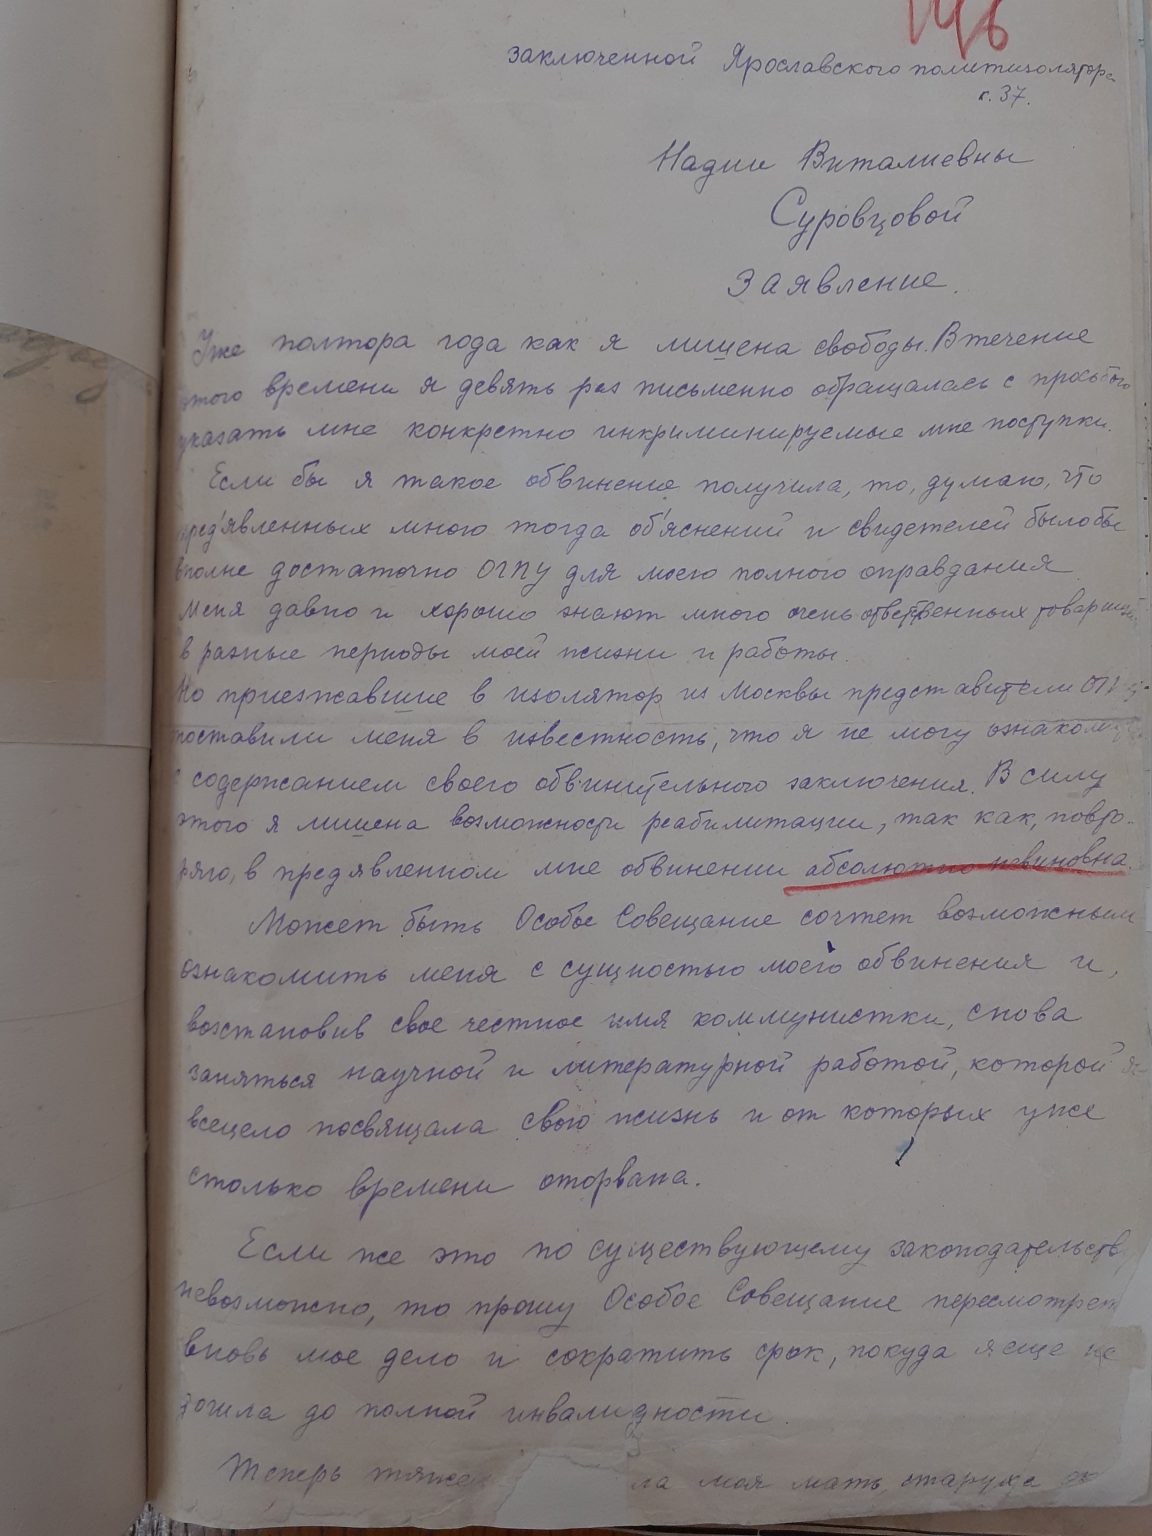 заключенной Ярославского политизолятора
к. 37.
Надии Виталиевны
Суровцовой
Заявление.
Уже полтора года как я лишена свободы. В течение
этого времени я девять раз письменно обращалась с просьбою
указать мне конкретно инкриминируемые мне поступки.
Если бы я такое обвинение получила, то, думаю, что
пред'явленных мною тогда об'яснений и свидетелей было бы
вполне достаточно ОГПУ для моего полного оправдания
Меня давно и хорошо знают много очень ответственных товарищей
в разные периоды моей жизни и работы.
Но приезжавшие в изолятор из Москвы представители ОГПУ
поставили меня в известность, что я не могу
с содержанием своего обвинительного заключения. В силу
этого я лишена возможности реабилитации, так как, повто-
ряю, в предявленном мне обвинении абсолютно невиновна.
Может быть Особое Совещание сочтет возможным
ознакомить меня с сущностью моего обвинения и,
возстановив свое честное имя коммунистки, снова
заняться научной и литературной работой, которой я
всецело посвящала свою жизнь и от которых уже
столько времени оторвана.
Если же это по существующему законодательств
невозможно, то прошу Особое Совещание пересмотреть
вновь мое дело и сократить срок, покуда я еще не
дошла до полной инвалидности.
Теперь тяже ла моя мать, старуха